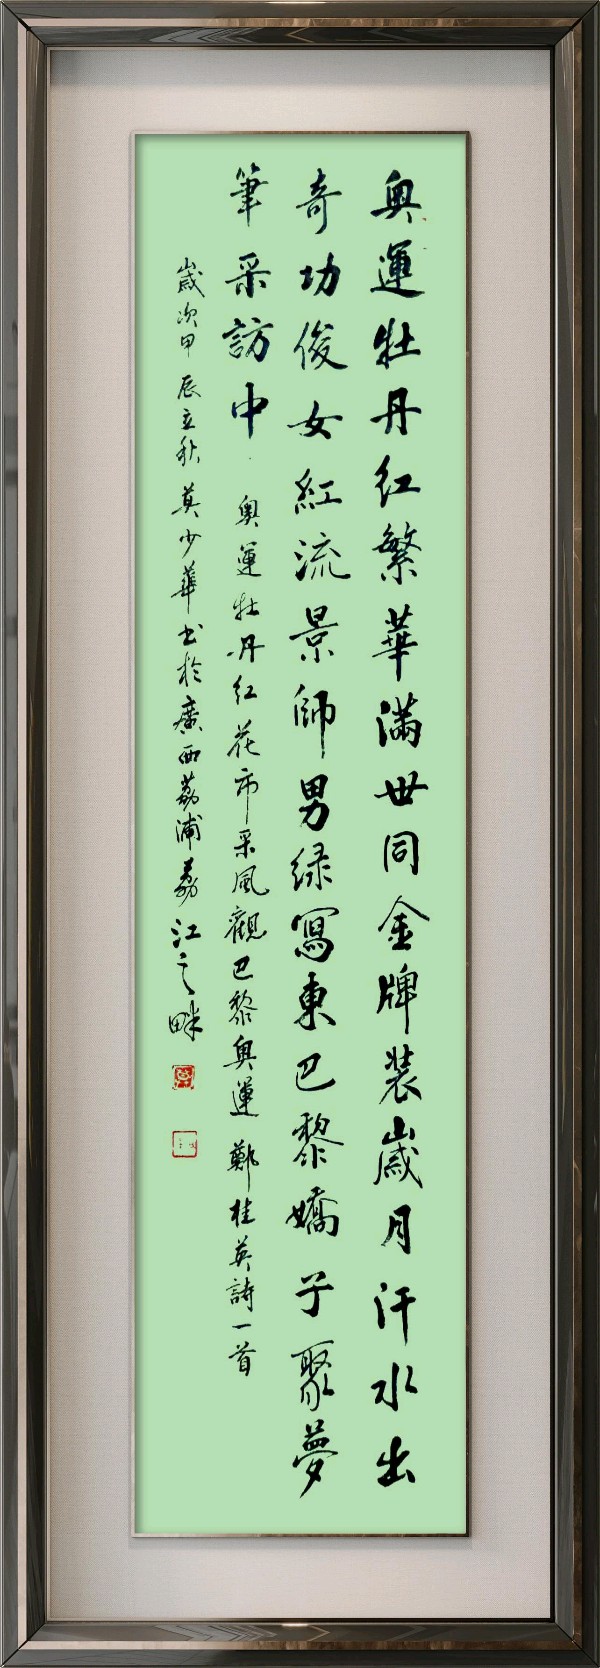 奥運牡丹红繁華满世同金牌装歲月汗水出
奇功俊女紅流景師男绿寫東巴黎嬌子聚夢
筆采訪中 奥運牡丹红花市采风觀巴黎奥運 鄭桂英詩一首
歲次甲辰立秋莫少華书於廣西荔浦荔江之畔